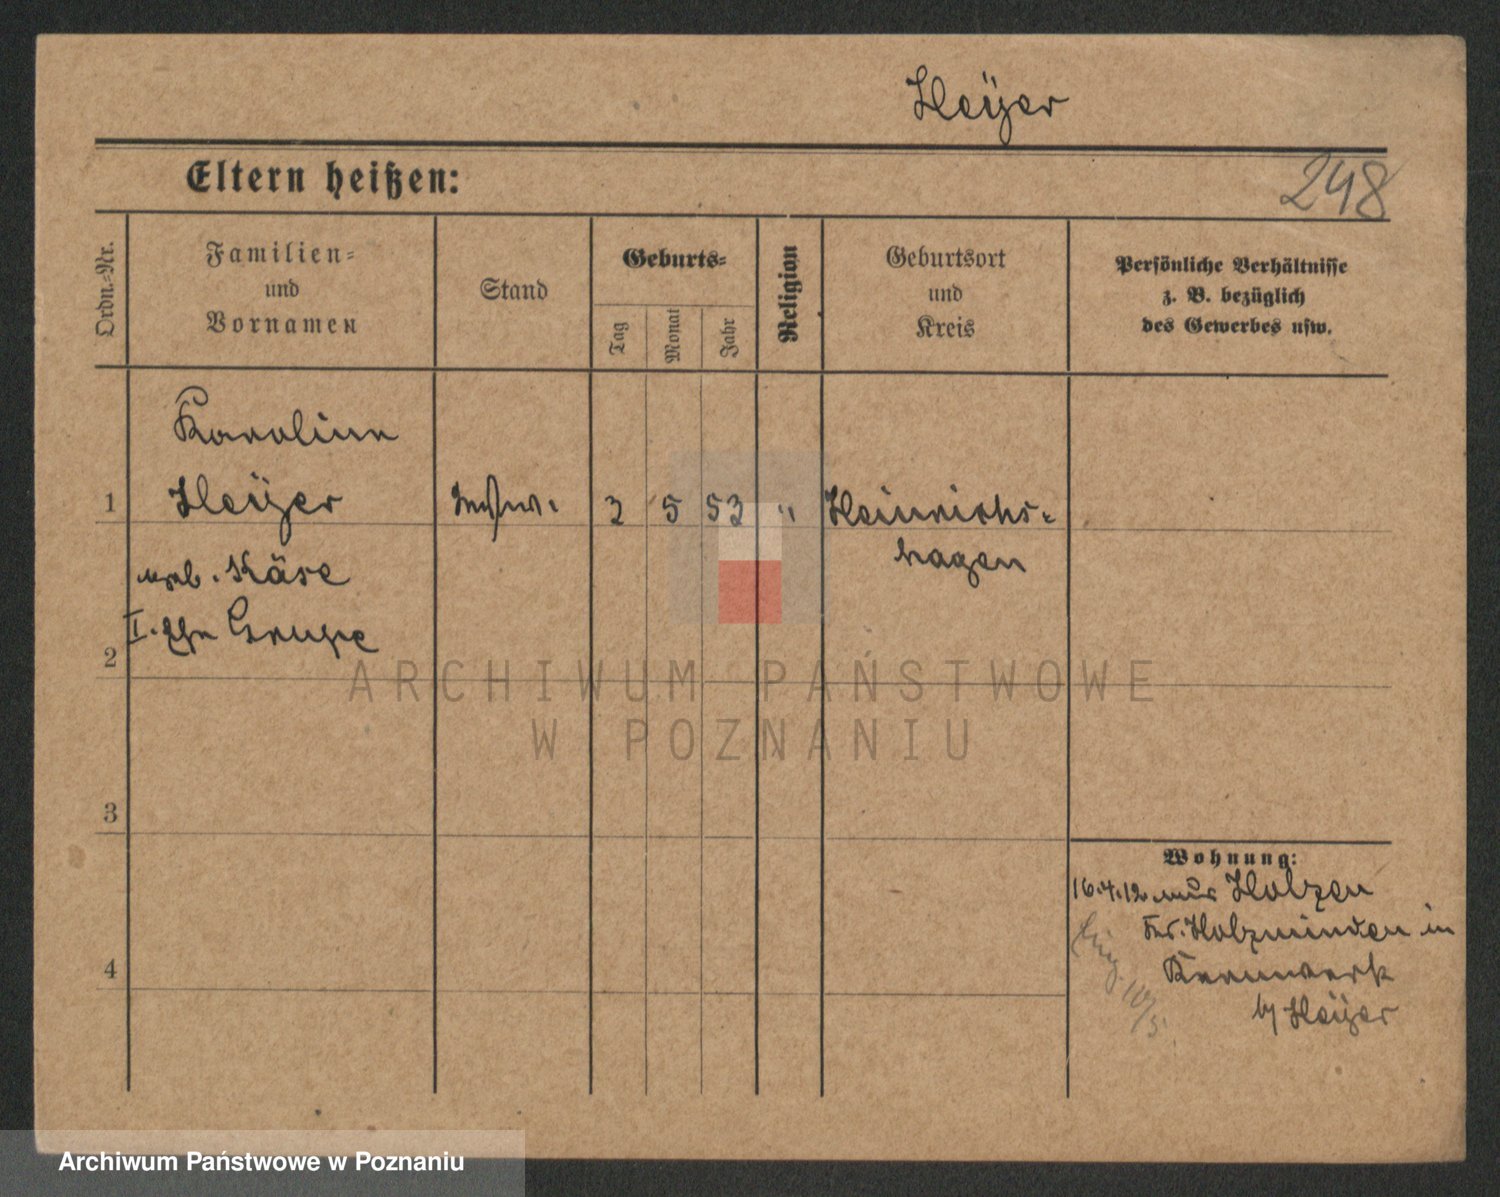 Heÿer
Eltern heißen:
248
Ordn.-Nr.
Familien-
und
Vornamen
Stand
Geburts-
Tag
Monat
Jahr
Religion
Geburtsort
und
Kreis
Persönliche Verhältnisse
z. B. bezüglich
des Gewerbes usw.
Karoline
1 Heÿer 2 5 53 " Heinrichs-
geb. Käse hagen
I. Ehe Grupe
2
3
4
Wohnung:
16.4.12 Holzen
Kr. Holzminden in
b/ Heÿer
10/5
ARCHIWUM PAŃSTWOWE
W POZNANIU
Archiwum Państwowe w Poznaniu